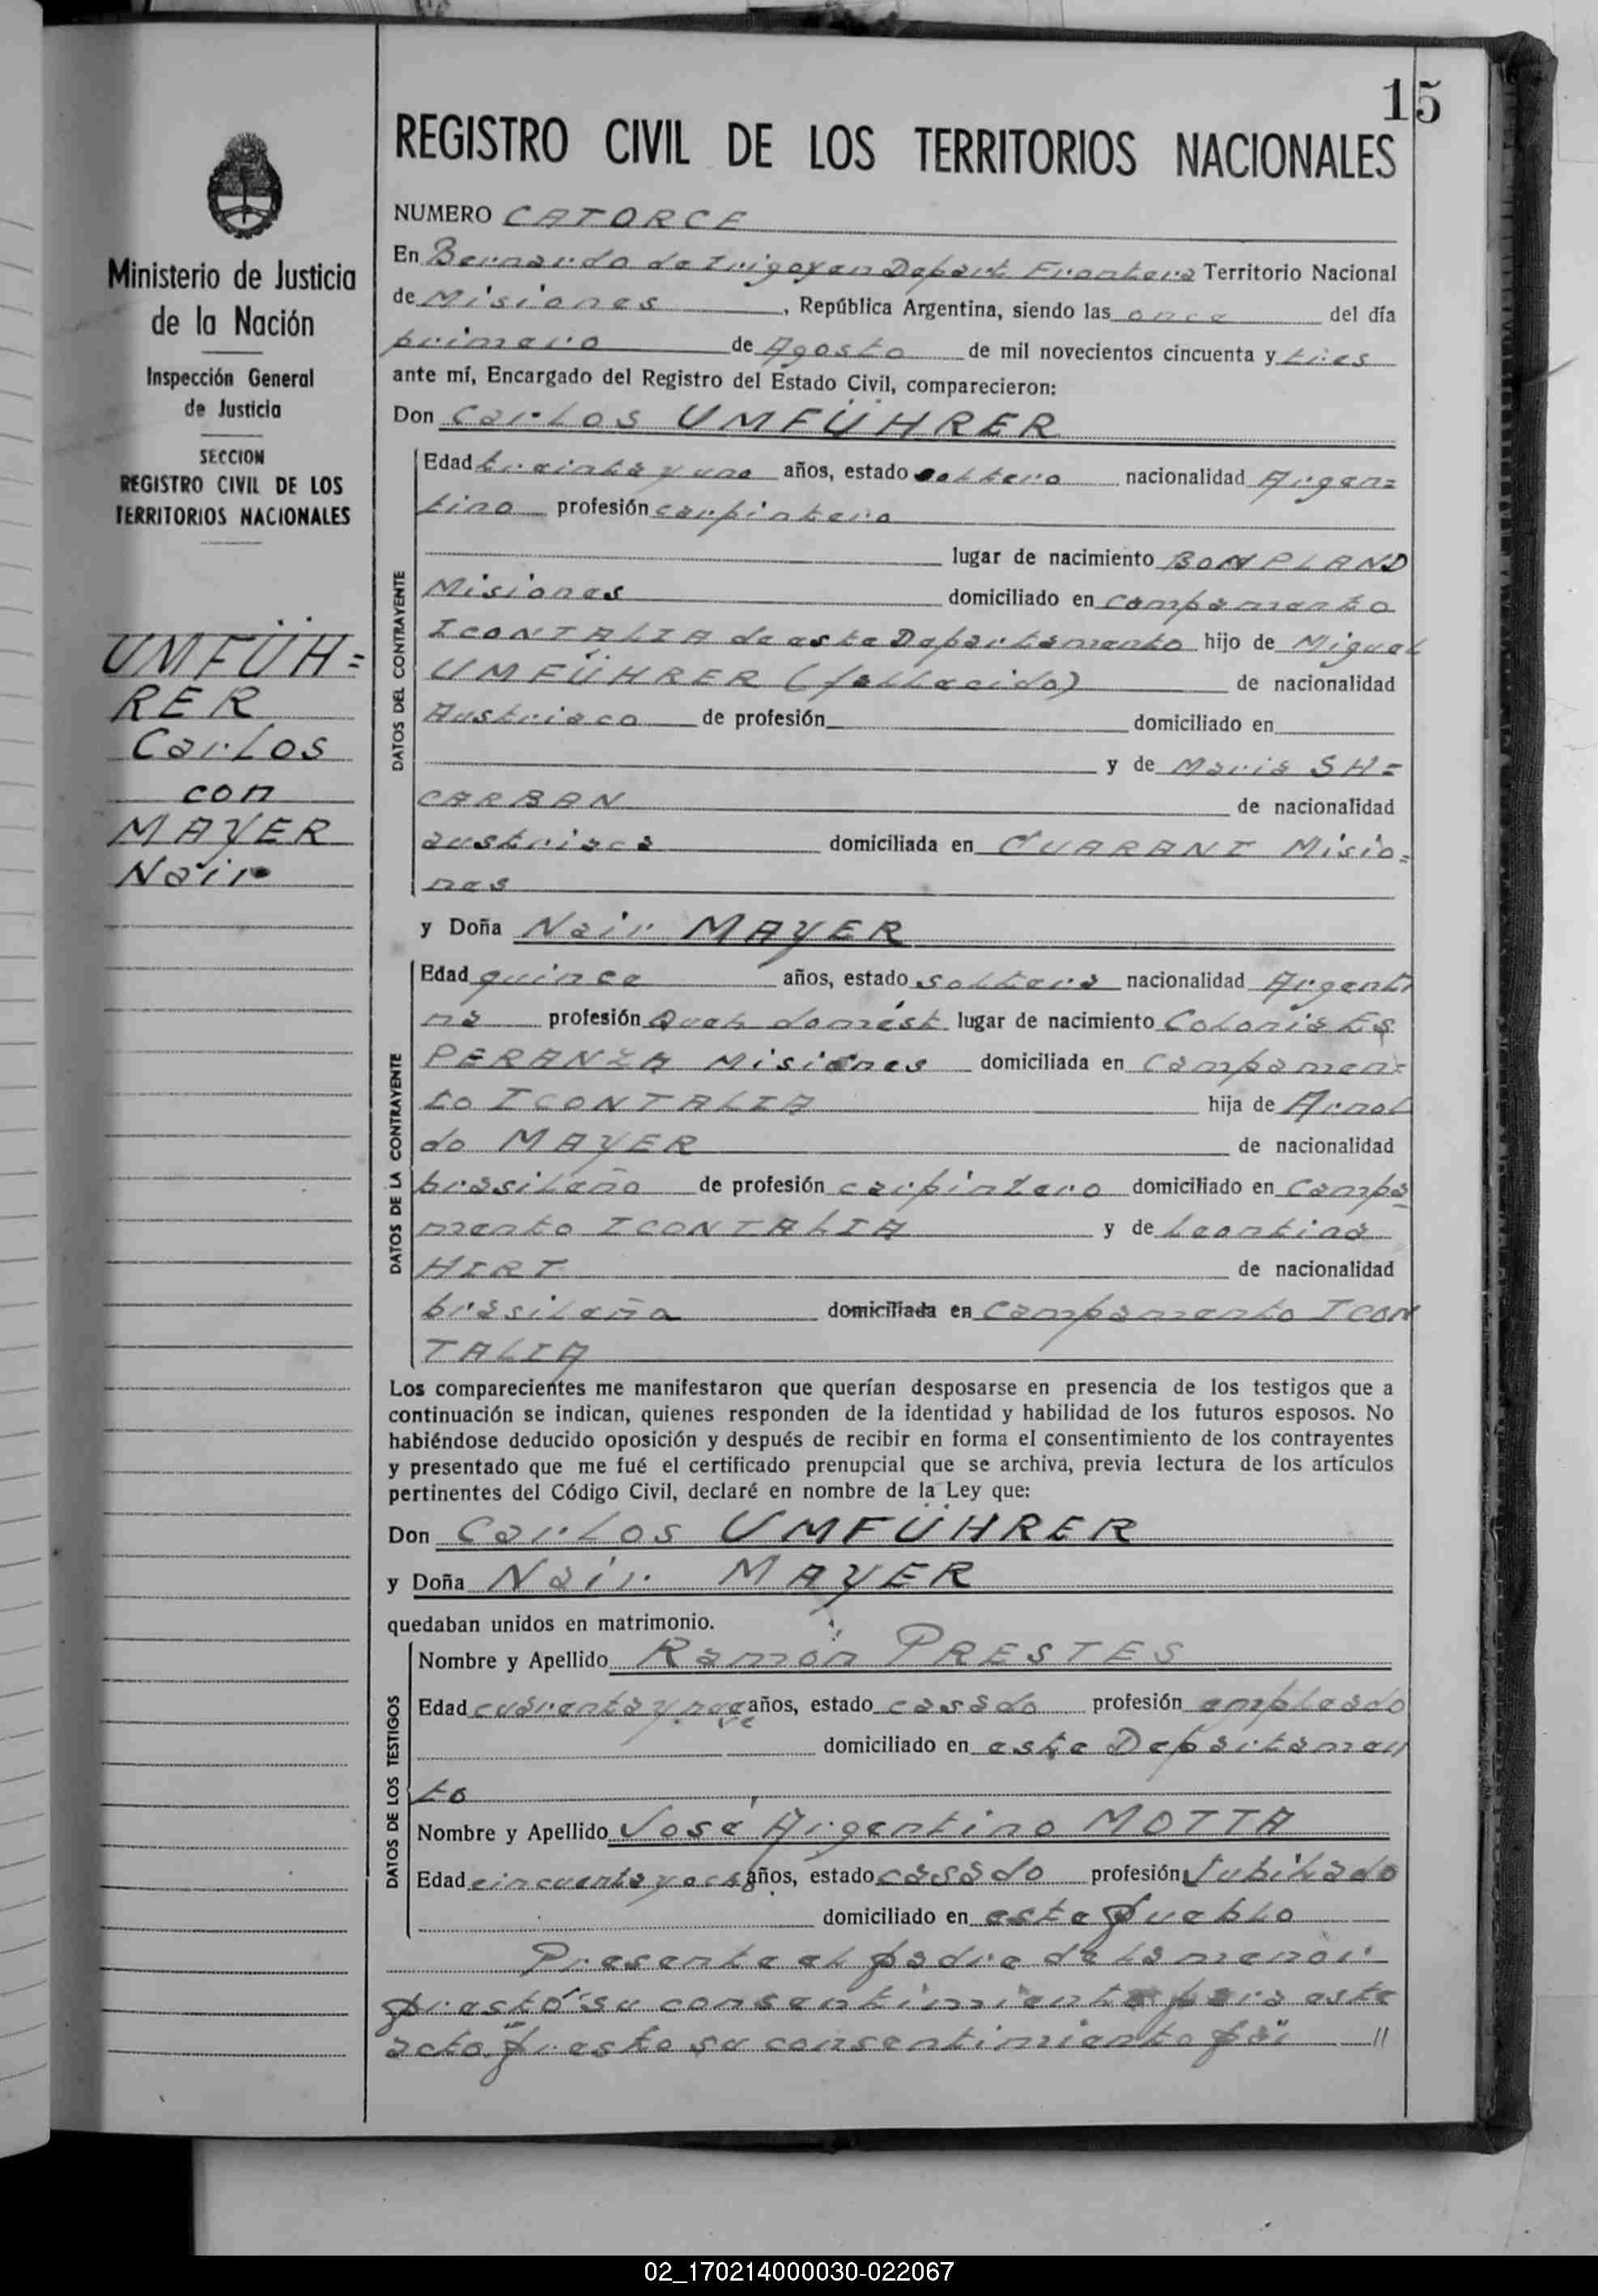 15
REGISTRO CIVIL DE LOS TERRITORIOS NACIONALES
Ministerio de Justicia
de la Nación
Inspección General
de Justicia
SECCION
REGISTRO CIVIL DE LOS
TERRITORIOS NACIONALES
UMFÜH=
RER
Carlos
con
MAYER
Nair
NUMERO CATORCE
En Bernardo de Irigoyen Depart. Frontera Territorio Nacional
de Misiones, República Argentina, siendo las once del día
primero de Agosto de mil novecientos cincuenta y tres
ante mí, Encargado del Registro del Estado Civil, comparecieron:
Don Carlos UMFÜHRER
DATOS DEL CONTRAYENTE
Edad treinta y uno años, estado soltero nacionalidad Argen=
tino profesión carpintero
lugar de nacimiento BONPLAND
Misiones domiciliado en campamento
ICONTALIA de este Departamento hijo de Miguel
UMFÜHRER (fallecido) de nacionalidad
Austriaco de profesión domiciliado en
y de Maria SH=
CARBAN de nacionalidad
austriaca domiciliada en GUARANI Misio=
nes
y Doña Nair MAYER
DATOS DE LA CONTRAYENTE
Edad quince años, estado soltera nacionalidad Argenti
na profesión Queh. domést. lugar de nacimiento Colonia ES
PERANZA Misiones domiciliada en Campamen=
to ICONTALIA hija de Arnol
do MAYER de nacionalidad
brasileño de profesión carpintero domiciliado en Campa
mento ICONTALIA y de Leontina
HIRT de nacionalidad
brasileña domiciliada en Campamento ICON
TALIA
Los comparecientes me manifestaron que querían desposarse en presencia de los testigos que a
continuación se indican, quienes responden de la identidad y habilidad de los futuros esposos. No
habiéndose deducido oposición y después de recibir en forma el consentimiento de los contrayentes
y presentado que me fué el certificado prenupcial que se archiva, previa lectura de los artículos
pertinentes del Código Civil, declaré en nombre de la Ley que:
Don Carlos UMFÜHRER
y Doña Nair MAYER
quedaban unidos en matrimonio.
DATOS DE LOS TESTIGOS
Nombre y Apellido Ramón PRESTES
Edad cuarenta y nueve años, estado casado profesión empleado
domiciliado en este Departamen
to
Nombre y Apellido José Argentino MOTTA
Edad cincuenta y ocho años, estado casado profesión Jubilado
domiciliado en este pueblo
Presente el padre de la menor
prestó su consentimiento para este
acto. "presto su consentimiento par" //
02_170214000030-022067